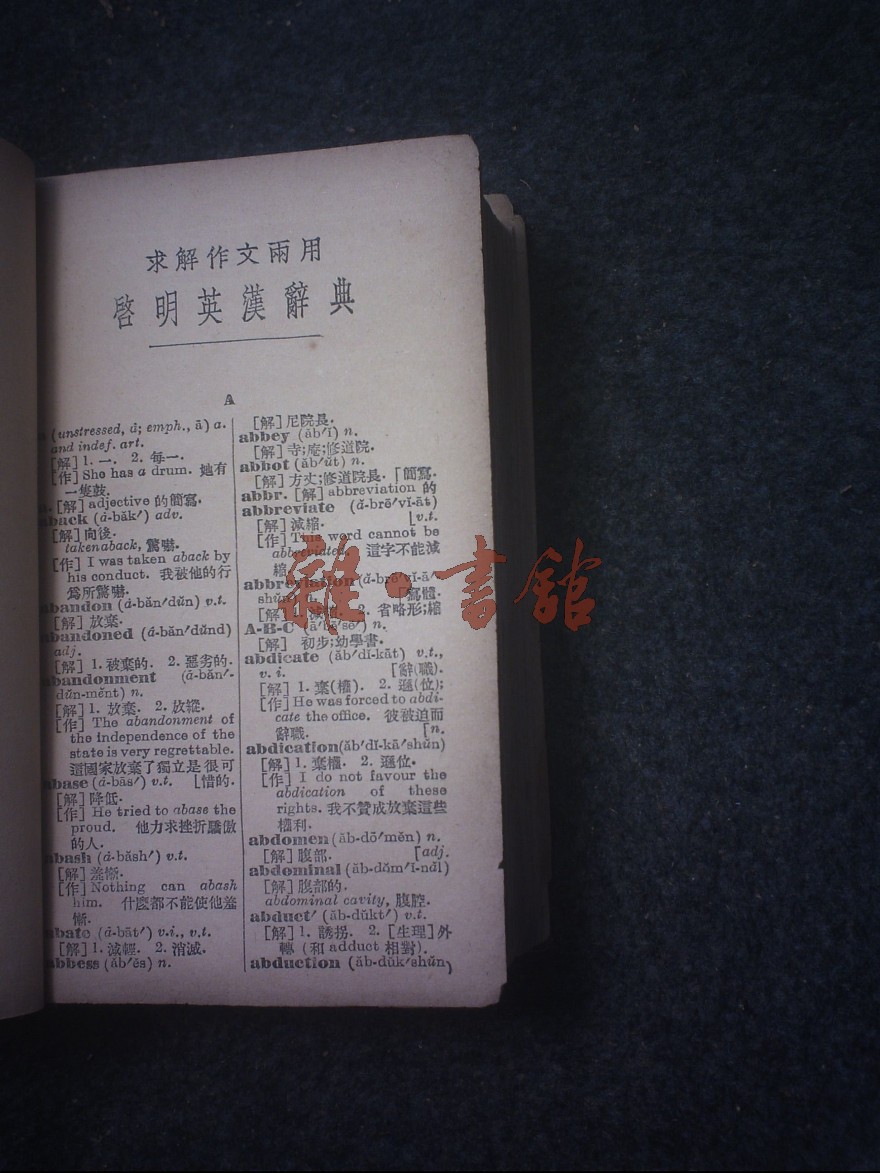 求解作文兩用
啓明英漢辭典
A
(unstressed, ȧ; emph., ā) a.
and indef. art.
[解] 1. 一. 2. 每一.
[作] She has a drum. 她有
一隻鼓.
[解] adjective 的簡寫.
aback (ȧ-băk′) adv.
[解] 向後.
taken aback, 驚嚇.
[作] I was taken aback by
his conduct. 我被他的行
爲所驚嚇.
abandon (ȧ-băn′dŭn) v.t.
[解] 放棄.
abandoned (ȧ-băn′dŭnd)
adj.
[解] 1. 被棄的. 2. 惡劣的.
abandonment (ȧ-băn′-
dŭn-mĕnt) n.
[解] 1. 放棄. 2. 放縱.
[作] The abandonment of
the independence of the
state is very regrettable.
這國家放棄了獨立是很可
abase (ȧ-bās′) v.t. [惜的.
[解] 降低.
[作] He tried to abase the
proud. 他力求挫折驕傲
的人.
abash (ȧ-băsh′) v.t.
[解] 羞慚.
[作] Nothing can abash
him. 什麼都不能使他羞
慚.
abate (ȧ-bāt′) v.i., v.t.
[解] 1. 減輕. 2. 消滅.
abbess (ăb′ĕs) n.
[解] 尼院長.
abbey (ăb′ĭ) n.
[解] 寺;庵;修道院.
abbot (ăb′ŭt) n.
[解] 方丈;修道院長. 「簡寫.
abbr. [解] abbreviation 的
abbreviate (ă-brē′vĭ-āt)
[解] 減縮. [v.t.
[作] This word cannot be
abbreviated. 這字不能減
縮.
abbreviation (ă-brē′vĭ-ā′
shŭn) n. 「寫體.
[解] 1. 減縮. 2. 省略形;縮
A-B-C (ā′bē′sē′) n.
[解] 初步;幼學書.
abdicate (ăb′dĭ-kāt) v.t.,
v. i. 「辭(職).
[解] 1. 棄(權). 2. 遜(位);
[作] He was forced to abdi-
cate the office. 彼被迫而
辭職. [n.
abdication (ăb′dĭ-kā′shŭn)
[解] 1. 棄權. 2. 遜位.
[作] I do not favour the
abdication of these
rights. 我不贊成放棄這些
權利.
abdomen (ăb-dō′mĕn) n.
[解] 腹部. [adj.
abdominal (ăb-dŏm′ĭ-năl)
[解] 腹部的.
abdominal cavity, 腹腔.
abduct′ (ăb-dŭkt′) v.t.
[解] 1. 誘拐. 2. [生理] 外
轉 (和 adduct 相對).
abduction (ăb-dŭk′shŭn)
雜·書館